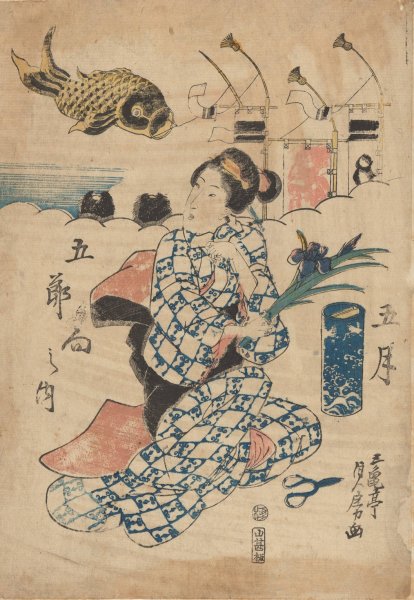 五月
五亀亭
貞房画
五節句之内